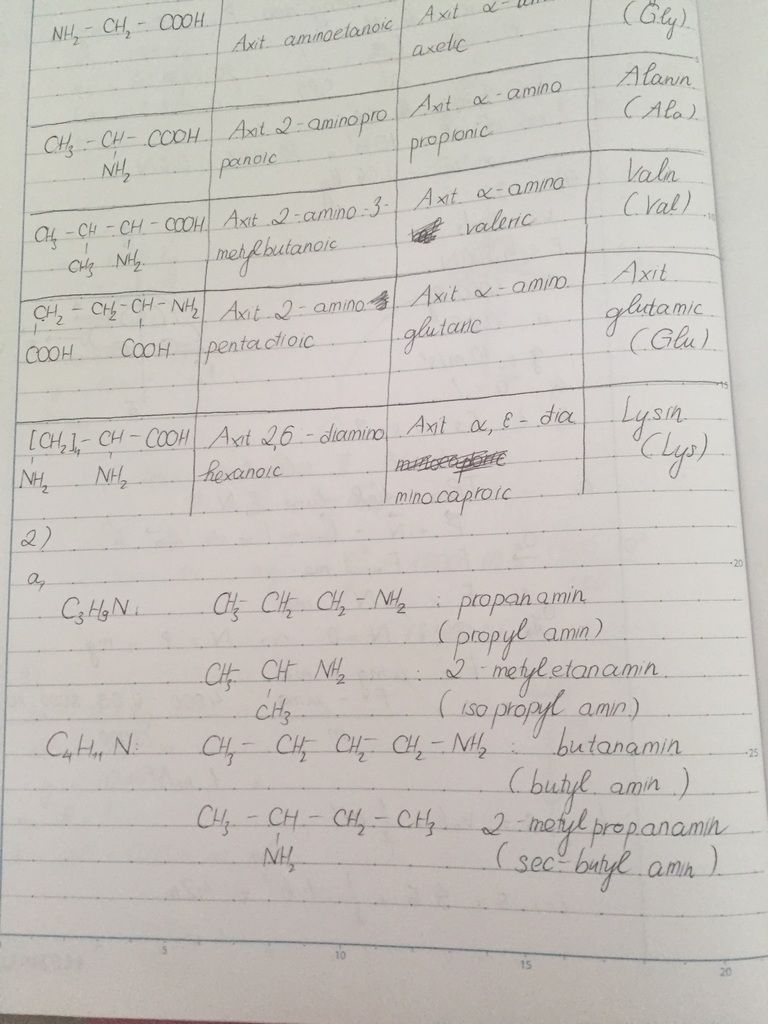 NH₂ - CH₂ - COOH
Axit aminoetanoic
Axit α-
axetic
(Gly)
CH₃ - CH - COOH
NH₂
Axit 2-aminopro
panoic
Axit α-amino
propionic
Alanin
(Ala)
CH₃ - CH - CH - COOH
CH₃ NH₂
Axit 2-amino-3-
metylbutanoic
Axit α-amino
valeric
Valin
(Val)
CH₂ - CH₂ - CH - NH₂
COOH COOH
Axit 2-amino
pentadioic
Axit α-amino
glutaric
Axit
glutamic
(Glu)
[CH₂]₄ - CH - COOH
NH₂ NH₂
Axit 2,6-diamino
hexanoic
Axit α, ε-dia
minocaproic
Lysin
(Lys)
2)
a,
C₃H₉N: CH₃- CH₂- CH₂ - NH₂ : propanamin
(propyl amin)
CH₃- CH- NH₂ : 2-metyletanamin
CH₃ (isopropyl amin)
C₄H₁₁N: CH₃ - CH₂- CH₂- CH₂ - NH₂ : butanamin
(butyl amin)
CH₃ - CH - CH₂ - CH₃ 2-metylpropanamin
NH₂ (sec-butyl amin)
5 10 15 20
15
20
25